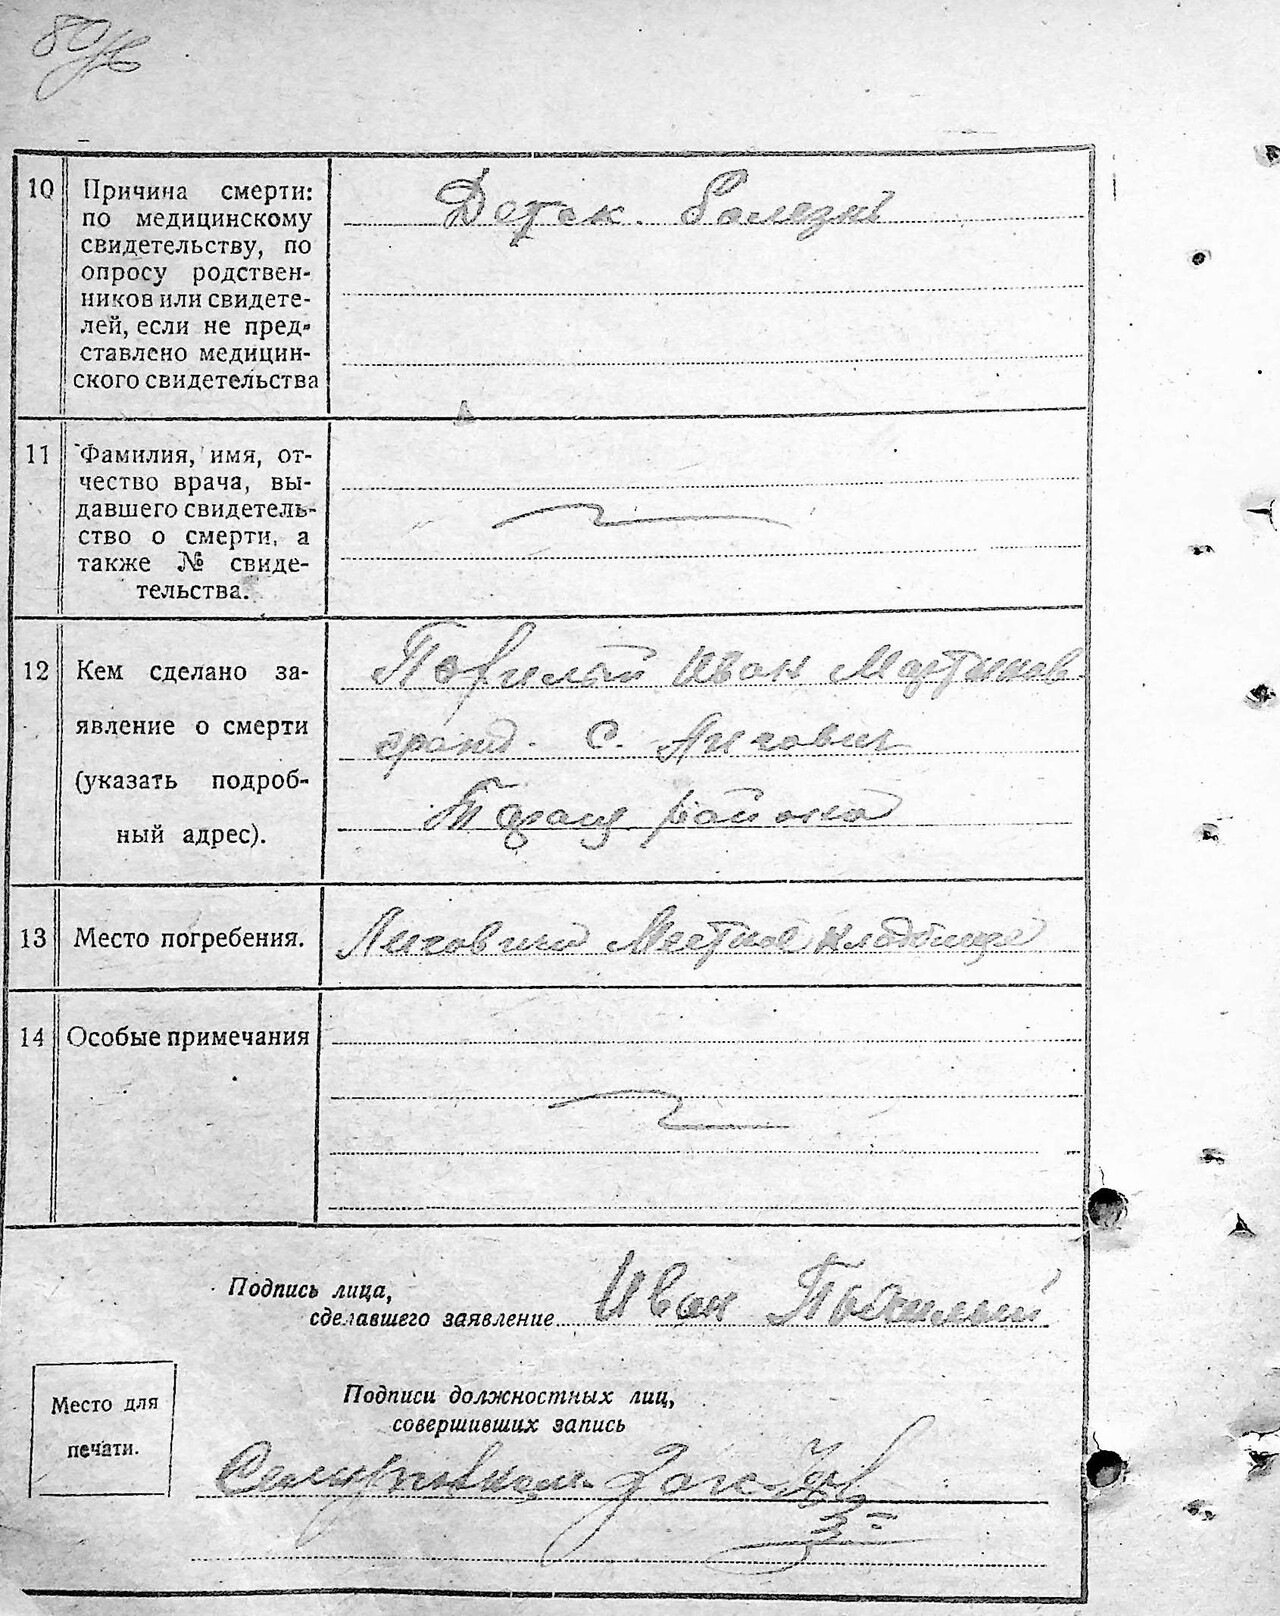 10 Причина смерти:
по медицинскому
свидетельству, по
опросу родствен-
ников или свидете-
лей, если не пред-
ставлено медицин-
ского свидетельства
Детск. болезнь
11 Фамилия, имя, от-
чество врача, вы-
давшего свидетель-
ство о смерти, а
также № свиде-
тельства.
12 Кем сделано за-
явление о смерти
(указать подроб-
ный адрес).
Иван Мартынов
гражд. с. Лиговичи
района
13 Место погребения.
Местное кладбище
14 Особые примечания
Подпись лица,
сделавшего заявление Иван
Место для
печати.
Подписи должностных лиц,
совершивших запись